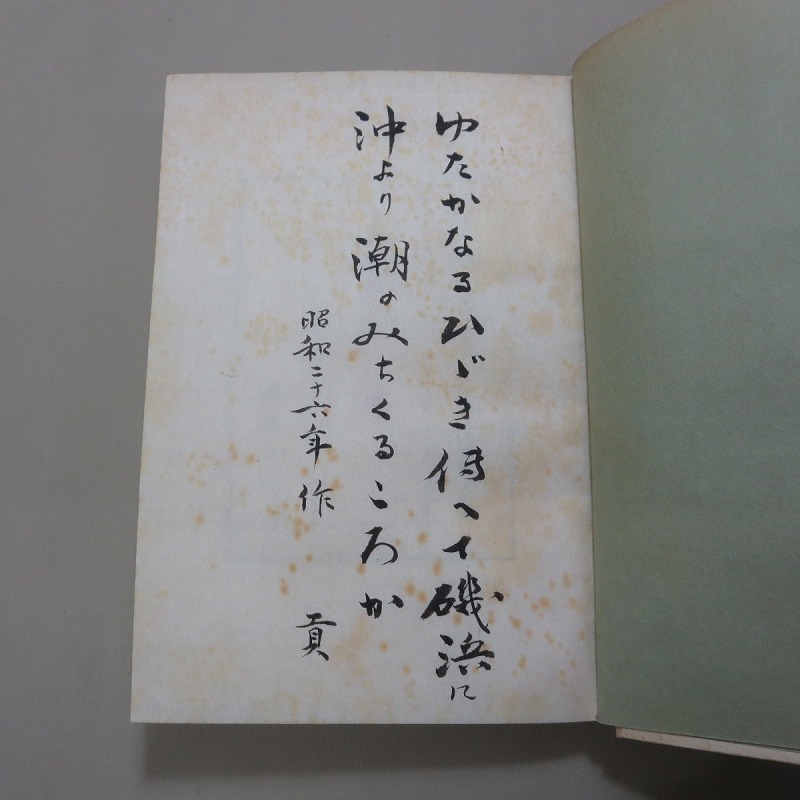 ゆたかなるひゞき傳へて磯浜に
沖より潮のみちくるころか
昭和二十六年作
貢